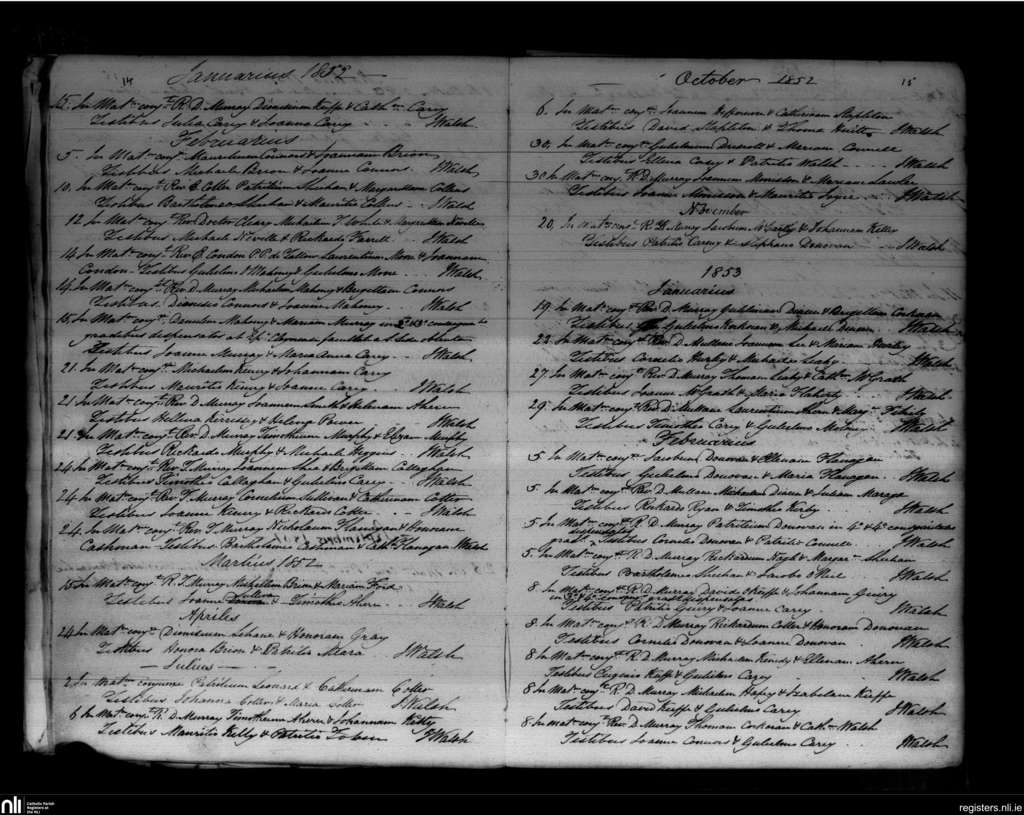 14 Januarius 1852
15. In Mat. conj. R. D. Murray Dionisium Keeffe & Cath. Carey
Testibus Julia Carey & Joanna Carey JWalsh
Februarius
5. In Mat. conj. Mauritium Connors & Joannam Brien
Testibus Michaele Brien & Joanna Connors. JWalsh
10. In Mat. conj. Rev. E. Coller Patritium Sheehan & Margaritam Collins
Testibus Bartholomeo Sheehan & Mauritio Collins JWalsh
12 In Mat. conj. Rev. Doctor Cleary Michaelem & Margaritam Neville
Testibus Michaele Neville & Rickardo Farrell JWalsh
14. In Mat. conj. Rev. E. Condon P.P. de Laurentium & Joannam
Condon - Testibus Gulielmo Mahony & Gulielmo JWalsh
14. In Mat. conj. Rev. D. Murray Michaelem Mahony & Brigettam Connors
Testibus Dionisio Connors & Joanna Mahony JWalsh
15. In Mat. conj. Danielem Mahony & Mariam Murray in
gradibus dispensatos at facultate a S. Sede obtenta
Testibus Joanna Murray & Maria Anna Carey JWalsh
21. In Mat. conj. Michaelem Kenry & Johannam Carey
Testibus Mauritio Kenry & Joanna Carey JWalsh
21 In Mat. conj. Rev. D. Murray Joannem & Helenam Ahern
Testibus Hellena & Helena Power JWalsh
21. In Mat. conj. Rev. D. Murray Timotheum Murphy & Elizam Murphy
Testibus Rickardo Murphy & Michaele Higgins JWalsh
24. In Mat. conj. Rev. T. Murray Joannem Shea & Brigettam Callaghan
Testibus Timotheo Callaghan & Gulielmo Carey JWalsh
24. In Mat. conj. Rev. T. Murray Cornelium Sullivan & Catherinam Cotter
Testibus Joanne Kenry & Rickardo Cotter JWalsh
24. In Mat. conj. Rev. T. Murray Nicholaum Flanigan & Honoram
Cashman - Testibus Bartholomeo Cashman & Cath. Flanagan Walsh
Martius 1852
15 In Mat. conj. R. T. Murray Brien & Mariam Ford
Testibus Joanne & Timotheo Ahern JWalsh
Apriles
24 In Mat. conj. Dionisium Lehane & Honoram Gray
Testibus Honora Brien & Patritio JWalsh
Julius
2 In Mat. conjunxi Patritium Leonard & Catherinam Cotter
Testibus Johanna Cotter & Maria Cotter JWalsh
6 In Mat. conj. R. D. Murray Timotheum Ahern & Johannam
Testibus Mauritio Kelly & Patritio Tobin JWalsh
October 1852 15
6. In Mat. conj. Joannem Heffernan & Catherinam Stapleton
Testibus David Stapleton & Thoma Hewitt JWalsh
30, In Mat. conj. Gulielmum Driscoll & Mariam Connell
Testibus Ellena Casey & Patritio Walsh JWalsh
30 In Mat. conj. R. D. Murray Joannem Morrisson & Mariam Lawler
Testibus Joanne Morrisson & Mauritio Joyce JWalsh
November
20, In Mat. conj. R. D. Murray Jacobum McCarthy & Johannam Kelley
Testibus Patritio Carey & Stephano Donovan JWalsh
1853
Januarius
19. In Mat. conj. Rev. D. Murray Gulielmum & Brigettam Corkoran
Testibus Gulielmo Corkoran & Michaele JWalsh
23. In Mat. conj. Rev. D. Mullane Joannem Lee & Mariam
Testibus Cornelio & Michaele Leahy JWalsh
27. In Mat. conj. Rev. D. Murray Thomam Leahy & Cath. McGrath
Testibus Joanne McGrath & Maria Flaherty JWalsh
29. In Mat. conj. Rev. D. Mullane Laurentium Ahern & Mary Flaherty
Testibus Timotheo Carey & Gulielmo JWalsh
Februarius
5 In Mat. conj. Jacobum Donovan & Ellenam Flanagan
Testibus Gulielmo Donovan & Maria Flanagan JWalsh
5 In Mat. conj. Rev. D. Mullane Michaelem & Juliam
Testibus Rickardo Ryan & Timotheo Kirby JWalsh
5 In Mat. conj. R. D. Murray Patritium Donovan in 4 & 4
grad. Testibus Cornelio Donovan & Patritio Connell JWalsh
5. In Mat. conj. R. D. Murray Rickardum & Margar. Sheehan
Testibus Bartholomeo Sheehan & Jacobo O'Neil JWalsh
8 In Mat. conj. R. D. Murray David Keeffe & Johannam Geary
Testibus Patritio Geary & Joanna Carey JWalsh
8. In Mat. conj. R. D. Murray Rickardum Coller & Honoram Donovan
Testibus Cornelio Donovan & Joanne Donovan JWalsh
8 In Mat. conj. R. D. Murray Michaelem Kenedy & Ellenam Ahern
Testibus Eugenio Keeffe & Gulielmo Carey JWalsh
8 In Mat. conj. R. D. Murray Michaelem & Isabelam Keeffe
Testibus David Keeffe & Gulielmo Carey JWalsh
8. In Mat. conj. Rev. D. Murray Thomam Corkoran & Cath. Walsh
Testibus Joanna Connors & Gulielmo Carey JWalsh
nli Catholic Parish Registers at the NLI
registers.nli.ie